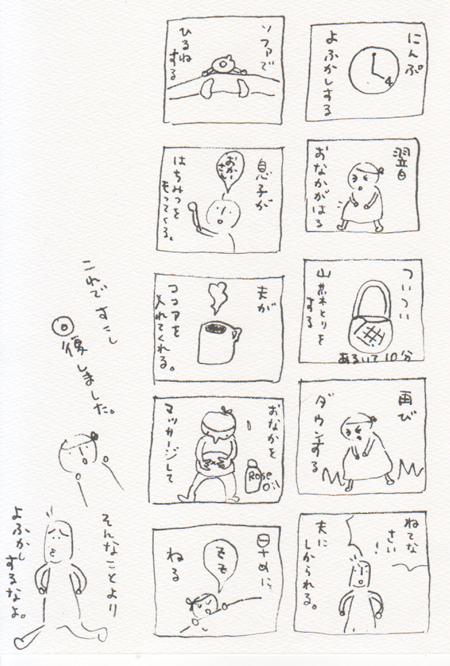 にんぷ
4
よふかしする
翌日
おなかがはる
ついつい
山菜とりを
する
あるいて10分
再び
ダウンする
ねてな
さい!
夫に
しかられる。
ソファで
ひるね
する
息子が
はちみつを
もってくる。
夫が
ココアを
入れてくれる。
おなかを
マッサージして
Rose
Oil
早めに
ねる
これですこし
回復しました。
そんなことより
よふかし
するなよ。